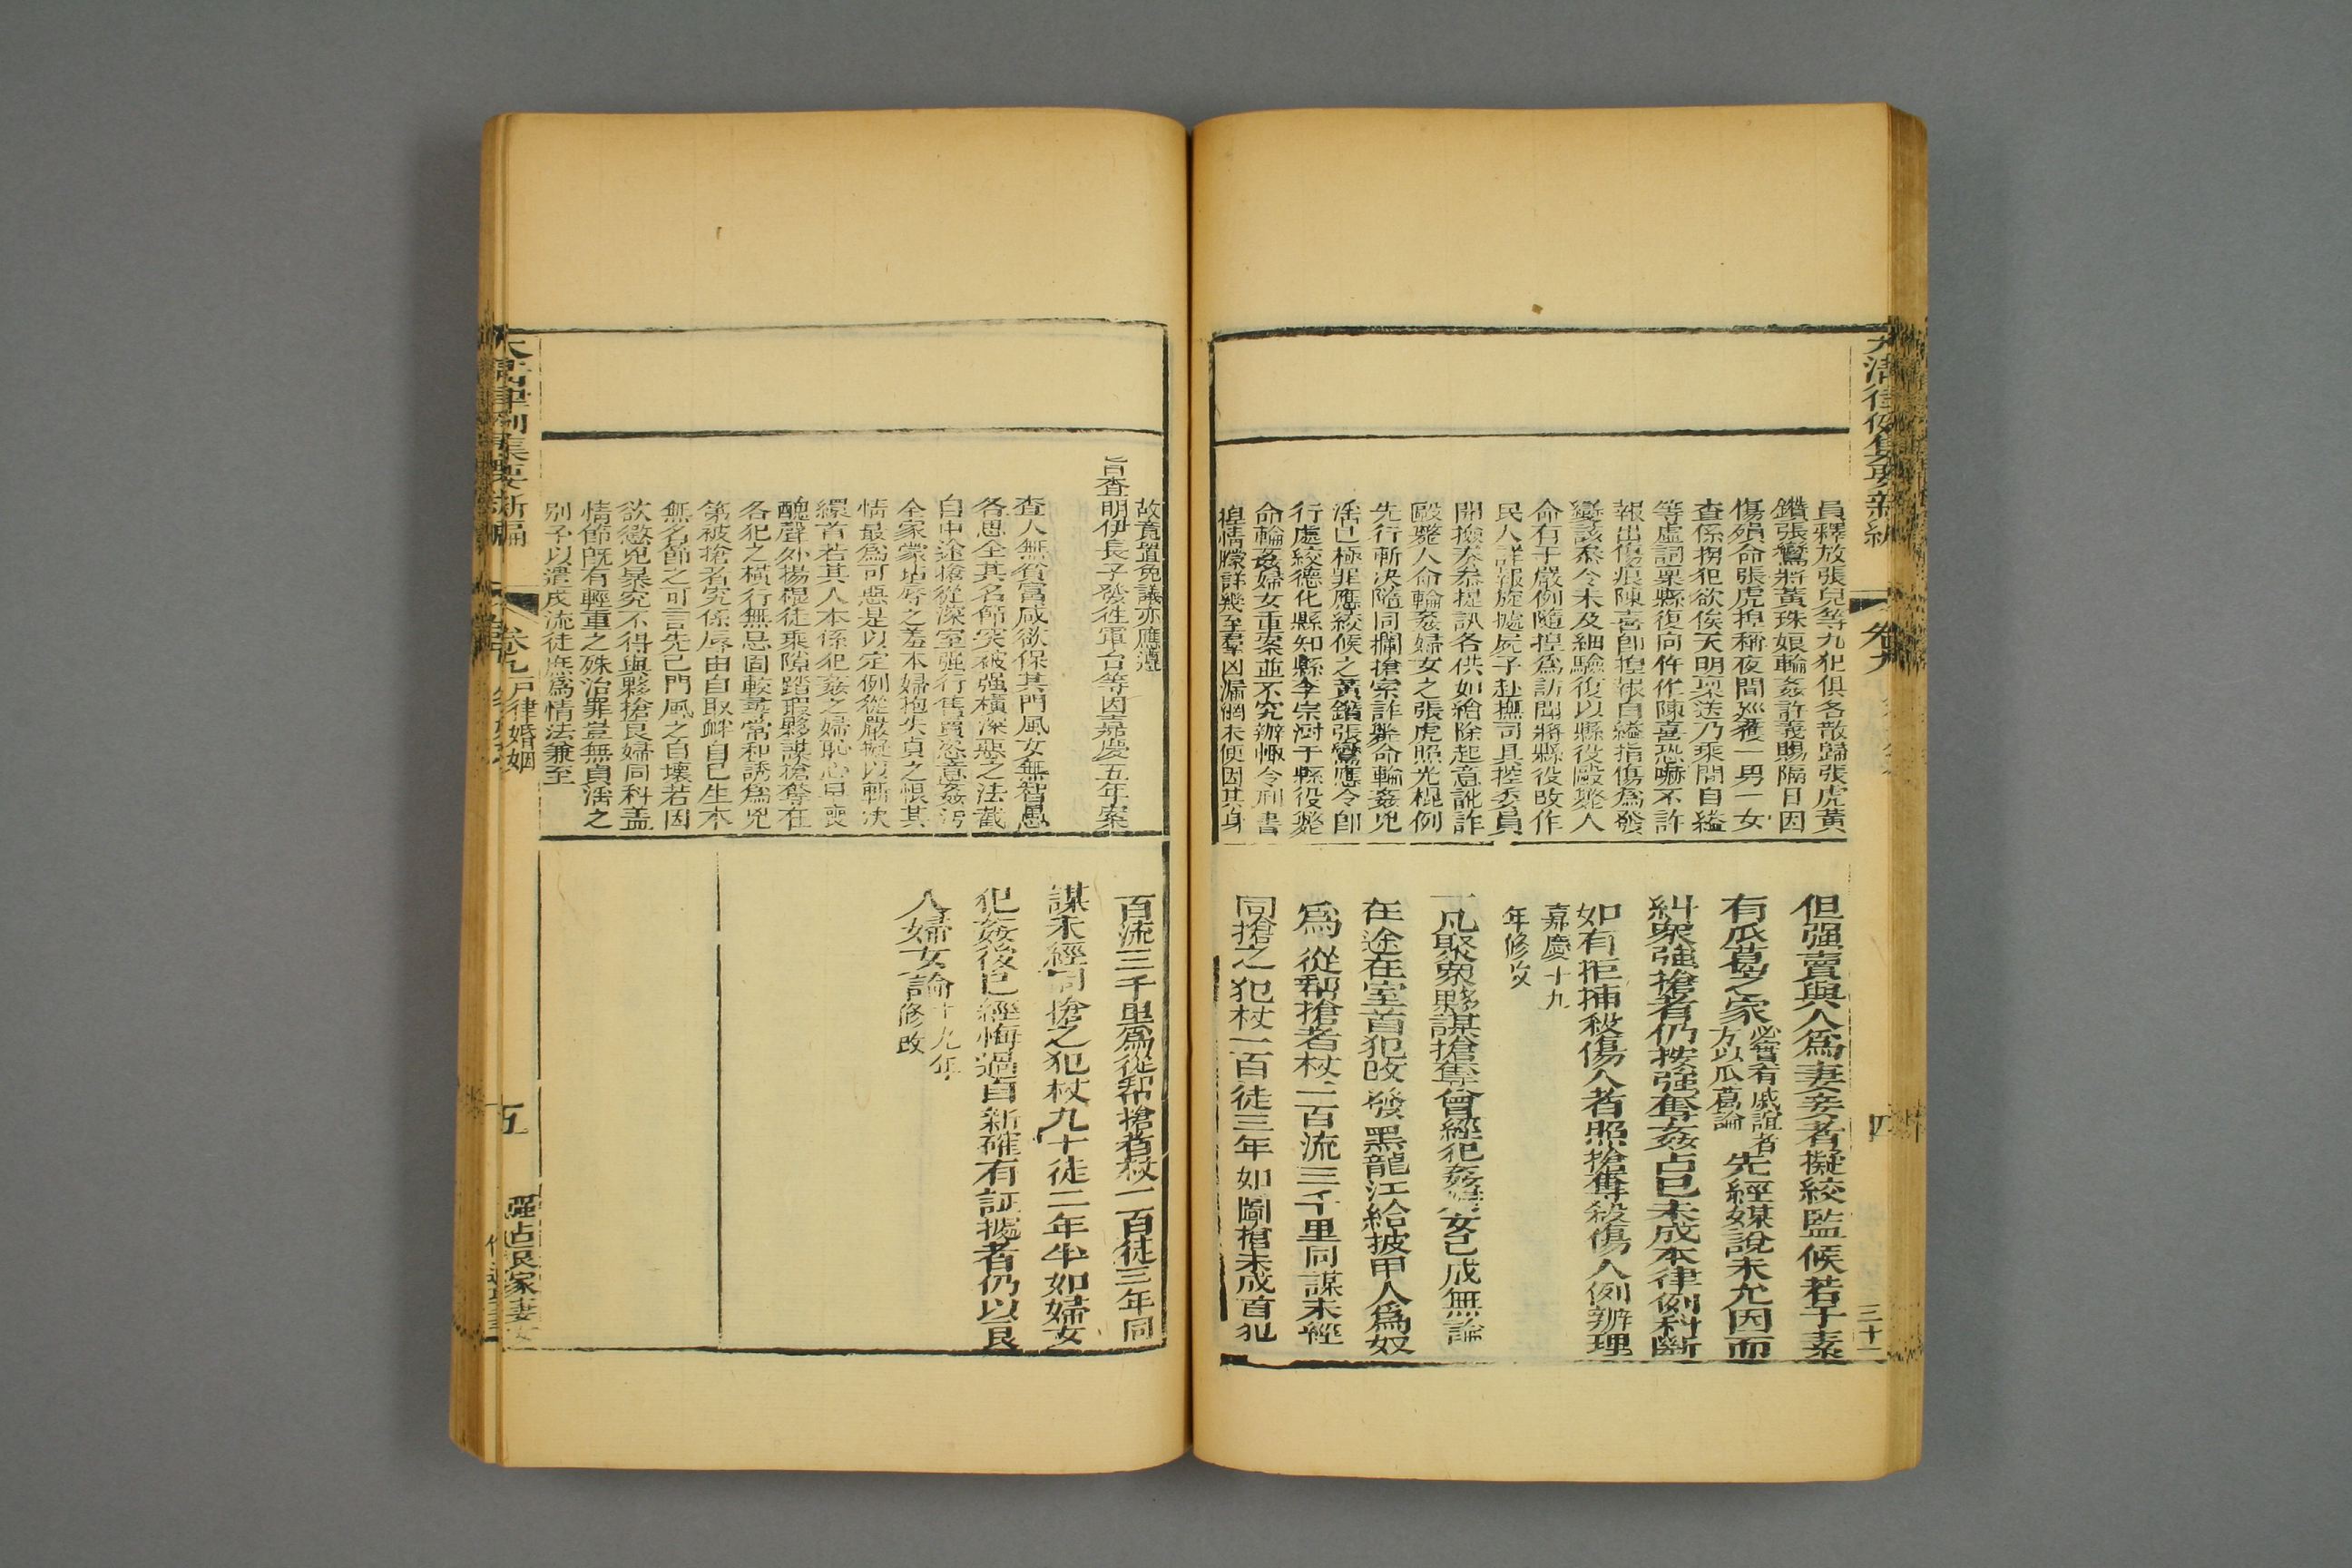 大清律例集要新編
卷九
四
三十一
員釋放張兒等九犯俱各散歸張虎黃
鑽張鸞將黃珠娘輪姦許義賜隔日因
傷殞命張虎捏稱夜間廵獲一男一女
查係拐犯欲俟天明禀送乃乘間自縊
等虛詞禀縣復向仵作陳喜恐嚇不許
報出傷痕陳喜卽捏報自縊指傷爲發
變該叅令未及細驗復以縣役毆斃人
命有于嚴例隨捏爲訪聞將縣役改作
民人詳報旋據屍子赴撫司具控委員
開撿奏叅提訊各供如繪除起意訛詐
毆斃人命輪姦婦女之張虎照光棍例
先行斬决隨同攔搶索詐斃命輪姦兇
滛已極罪應絞候之黃鑽張鸞應令卽
行處絞德化縣知縣李宗澍于縣役斃
命輪姦婦女重案並不究辦輙令刑書
捏情朦詳幾至羣凶漏網未便因其身
但强賣與人爲妻妾者擬絞監候若子素
有瓜葛之家必實有戚誼者方以瓜葛論先經媒說未允因而
糾衆强搶者仍按强奪姦占已未成本律例科斷
如有拒捕殺傷人者照搶奪殺傷人例辦理
嘉慶十九
年修改
一凡聚衆夥謀搶奪曾經犯姦婦女已成無論
在途在室首犯改發黑龍江給披甲人爲奴
爲從幫搶者杖一百流三千里同謀未經
同搶之犯杖一百徒三年如圖搶未成首犯
故竟置免議亦應遵
旨查明伊長子發徃軍台等因嘉慶五年案
查人無貧富咸欲保其門風女無智愚
各思全其名節突被强橫深惡之法截
自中途搶從深室强行售賣恣意姦汚
全家蒙垢辱之羞本婦抱失貞之恨其
情最爲可惡是以定例從嚴擬以斬决
繯首若其人本係犯姦之婦恥心早喪
醜聲外揚棍徒乘隙踏瑕夥謀搶奪在
各犯之橫行無忌固較尋常和誘爲兇
第被搶者究係辱由自取衅自己生本
無名節之可言先己門風之自壞若因
欲懲兇暴究不得與夥搶良婦同科盖
情節旣有輕重之殊治罪豈無貞滛之
别予以遣戍流徒庶爲情法兼至
百流三千里爲從幫搶者杖一百徒三年同
謀未經同搶之犯杖九十徒二年半如婦女
犯姦後已經悔過自新確有証據者仍以良
人婦女論十九年修改
大淸律例集要新編
卷九戶律婚姻
五
强占良家妻女